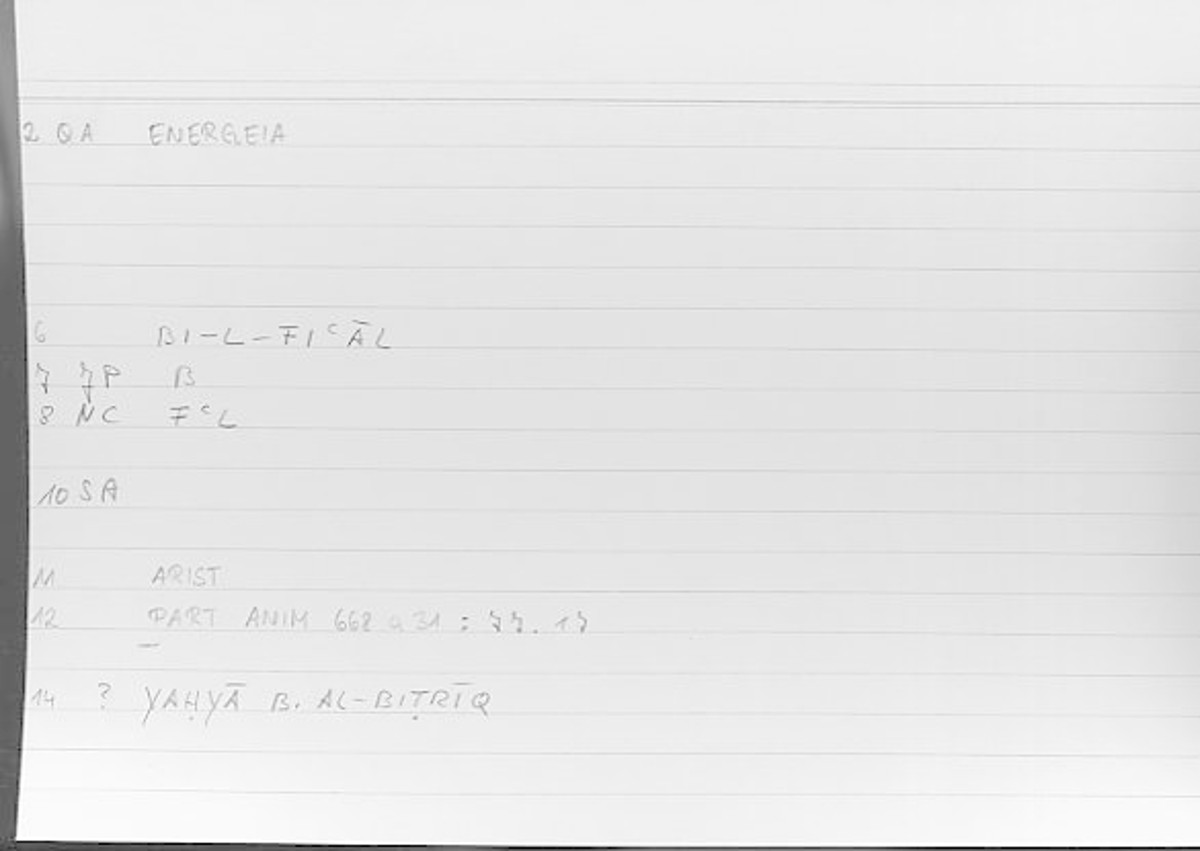 2 QA ENERGEIA
6 BI-L-FIᶜĀL
7 7P B
8 NC FᶜL
10 SA
11 ARIST
12 PART ANIM 668 a 31 : 77. 17
14 ? YAḤYĀ B. AL-BIṬRĪQ